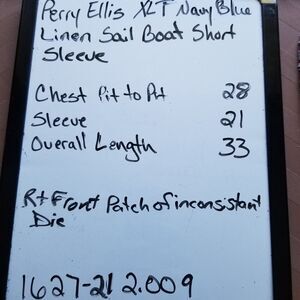 Perry Ellis XLT Navy Blue
Linen Sail Boat Short
Sleeve
Chest Pit to Pit 28
Sleeve 21
Overall Length 33
Rt Front Patch of inconsistant
Die
1627-21 2.009